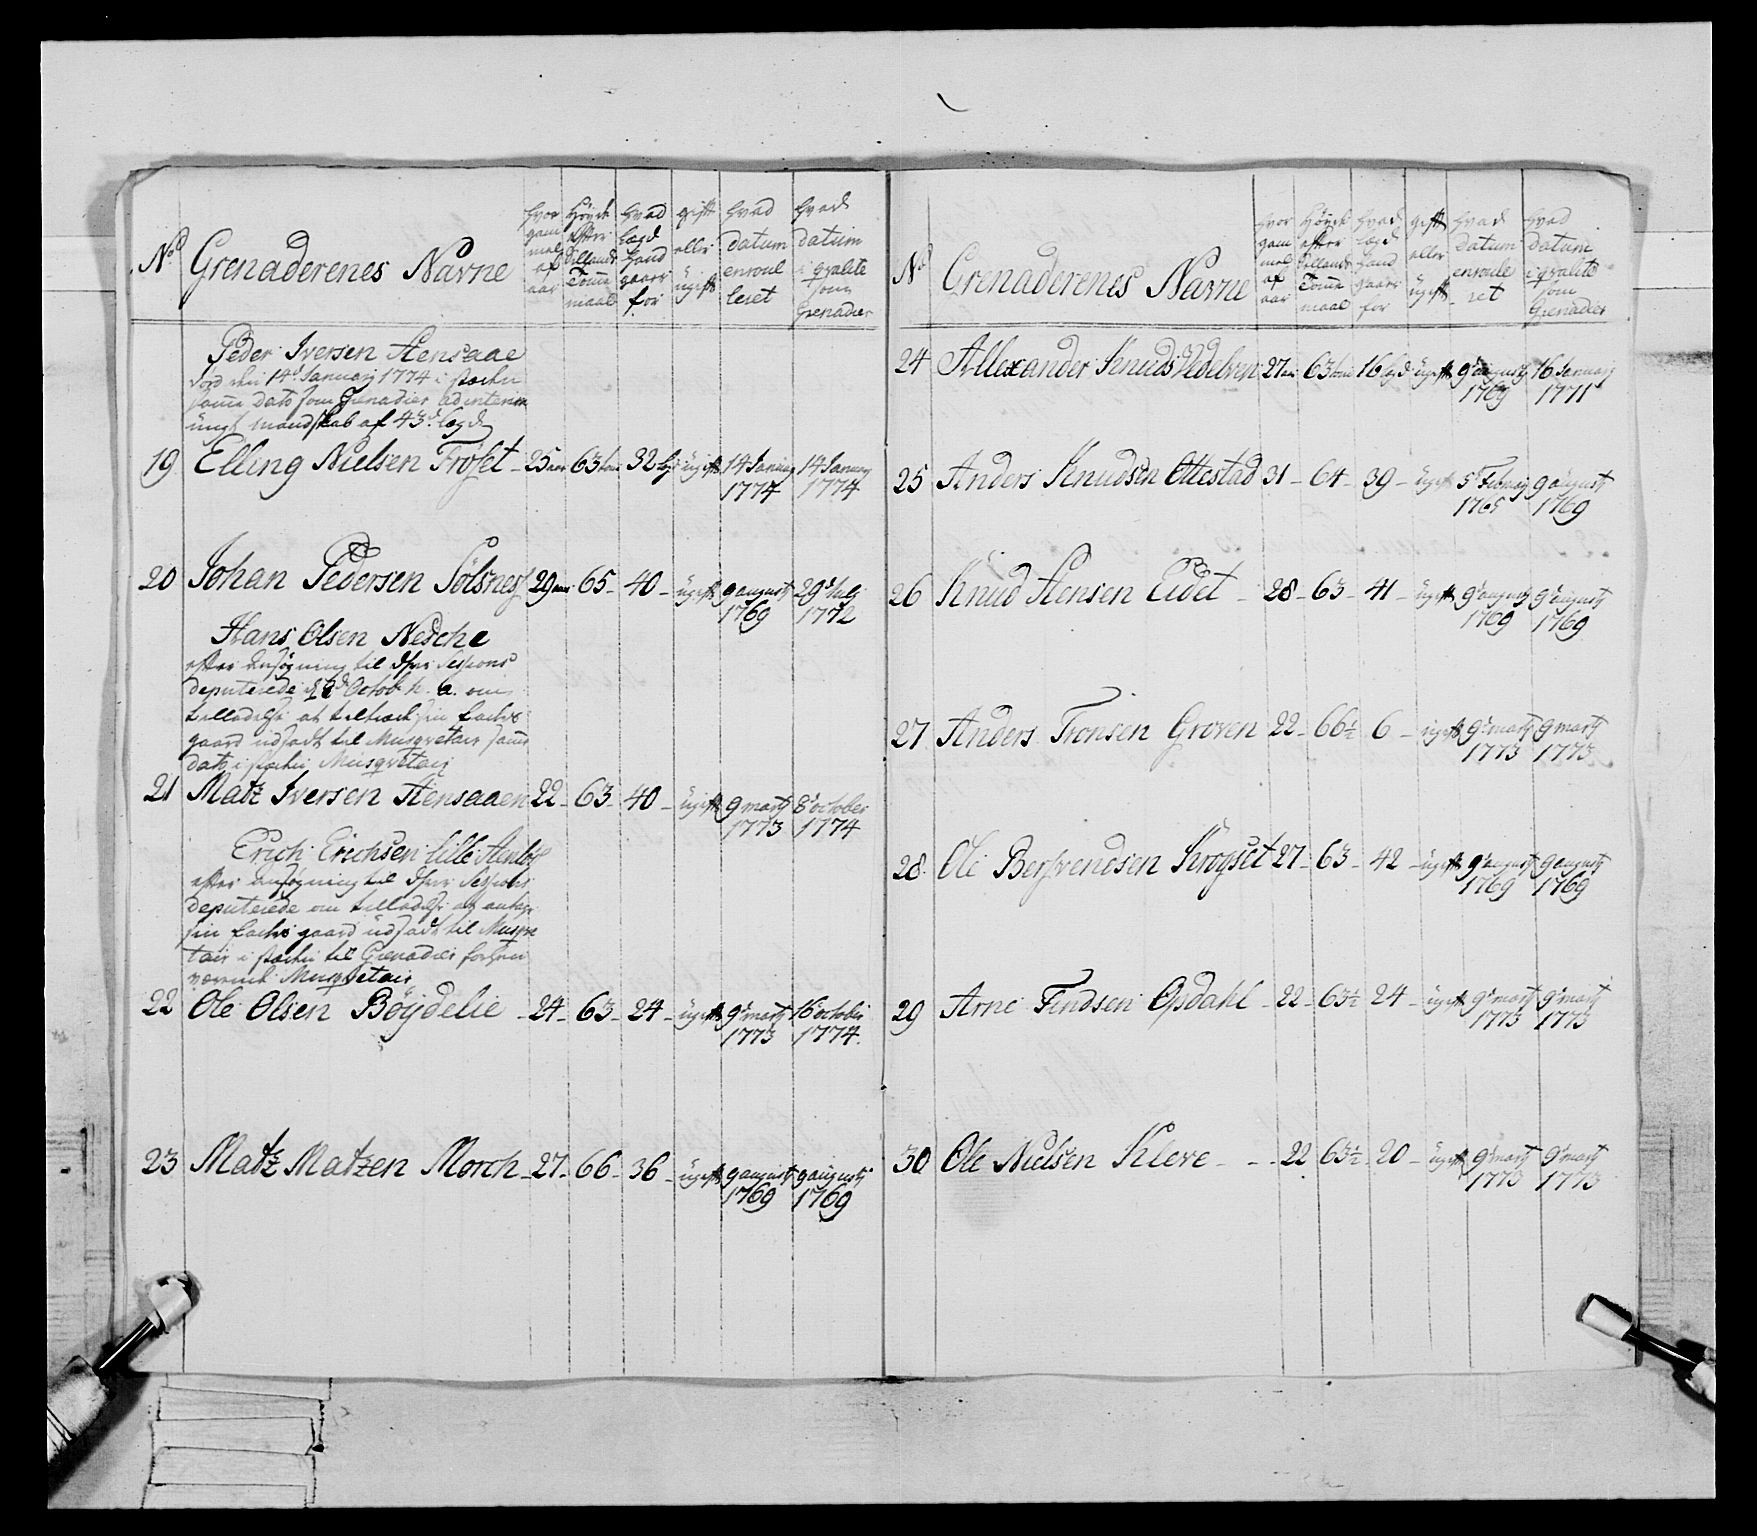 No Grenaderenes Navne
hvor gam mel af aar
Høyde efter Sællands Tomme maal
hvad lægd hand gaaer for
gift eller ugift
hvad datum enroul leret
hvad datum i qvalite som Grenadier
Peder Iversen Aensaae
død den 14d Januarj 1774 i stæden
samme dato som Grenadier ad interim
ungt mandskab af 43d lægd
19 Elling Nielsen Frøset 25 aar 63 tom 32 lgd ugift 14 Januarj 1774 14 Januarj 1774
20 Johan Pedersen Sølsnes 29 aar 65 40 ugift 9 augustj 1769 29d Julj 1772
Hans Olsen Nedche
efter ansøgning til Sessions
deputerede Octob h. a. om
tilladelse at
gaard udsadt til Musqvetair samme
dato i stæden Musqvetair
21 Matz Iversen Aensaaen 22 63 40 ugift 9 martj 1773 8d october 1774
Erich Erichsen lille
efter ansøgning til Sessions
deputerede om tilladelse at antage
sin gaard udsadt til Musqve
tair i stæden til Grenadier
Musqvetair
22 Ole Olsen Bøydelie 24 63 24 ugift 9d martj 1773 16 october 1774
23 Matz Matzen Morch 27 66 36 ugift 9 augustj 1769 9 augustj 1769
No Grenaderenes Navne
hvor gam mel af aar
Høyde efter Sællands Tomme maal
hvad lægd hand gaaer for
gift eller ugift
hvad datum enroule ret
hvad datum i qvalite som Grenadier
24 Allexander Knuds Vedelven 27 aar 63 tom 16 lgd ugift 9d augustj 1769 16 Januarj 1771
25 Anders Knudsen Ottestad 31 64 39 ugift 5d Febuarj 1765 9 augustj 1769
26 Knud Hensen Eidet 28 63 41 ugift 9d augustj 1769 9d augustj 1769
27 Anders Tronsen Groven 22 66½ 6 ugift 9d martj 1773 9 martj 1773
28 Ole Bersvendsen Krogset 27 63 42 ugift 9d augustj 1769 9 augustj 1769
29 Arne Findsen Opdahl 22 63½ 24 ugift 9d martj 1773 9d martj 1773
30 Ole Nielsen Kleve 22 63½ 20 ugift 9d martj 1773 9d martj 1773